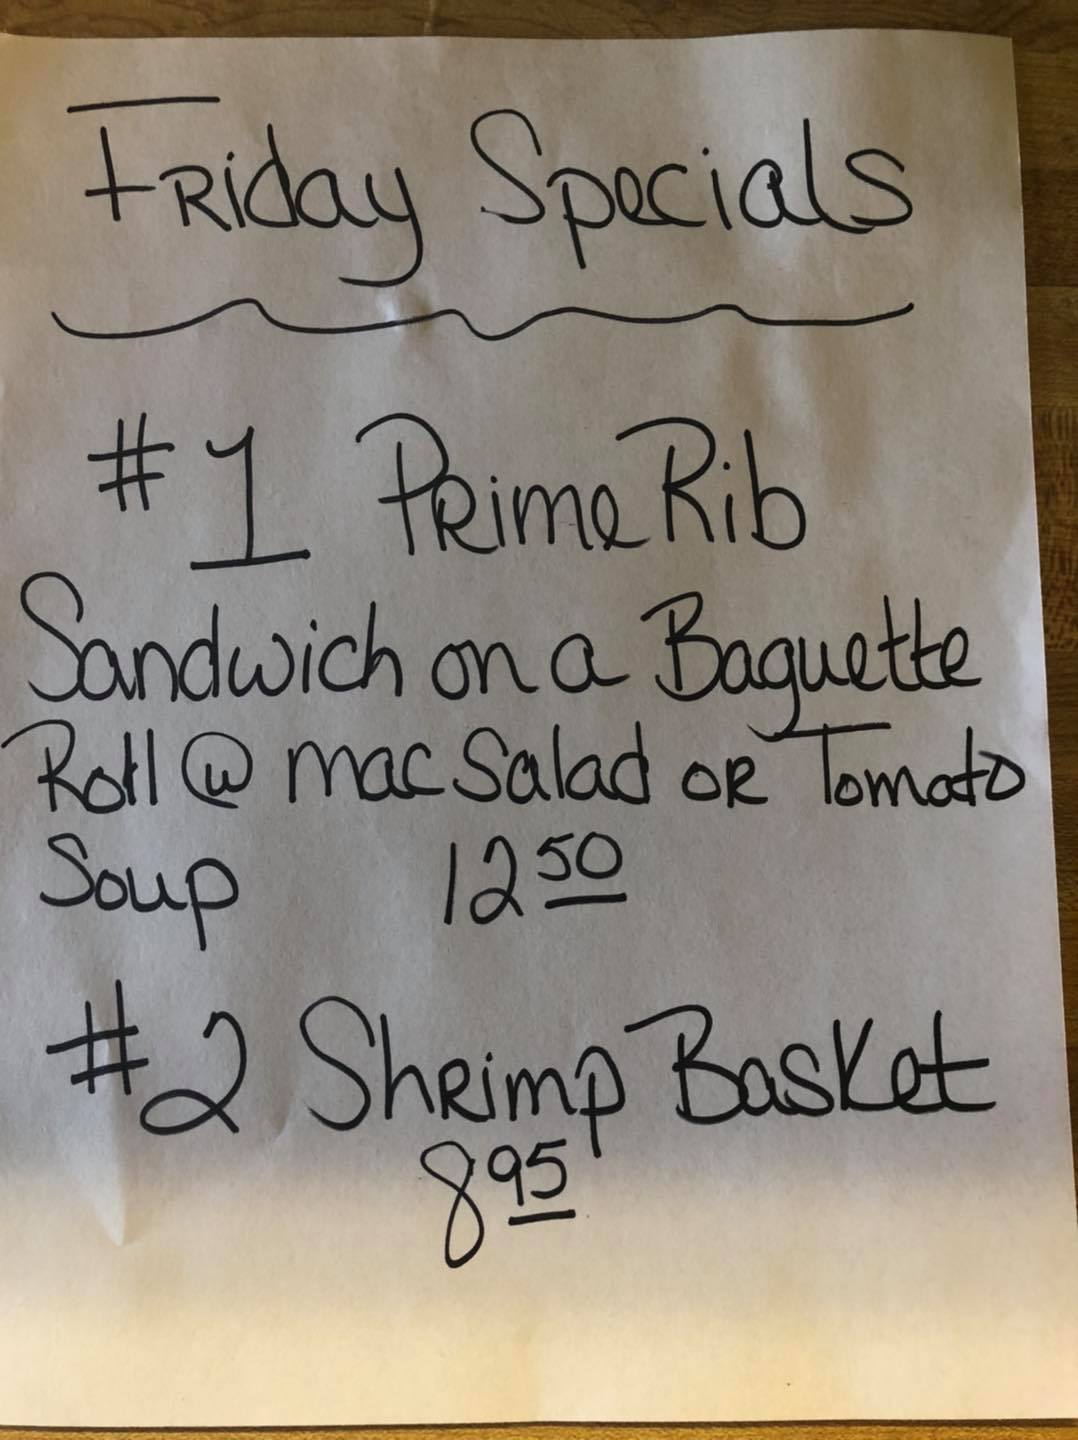 Friday Specials
#1 Prime Rib
Sandwich on a Baguette
Roll @ mac Salad or Tomato
Soup 12 50
#2 Shrimp Basket
8 95